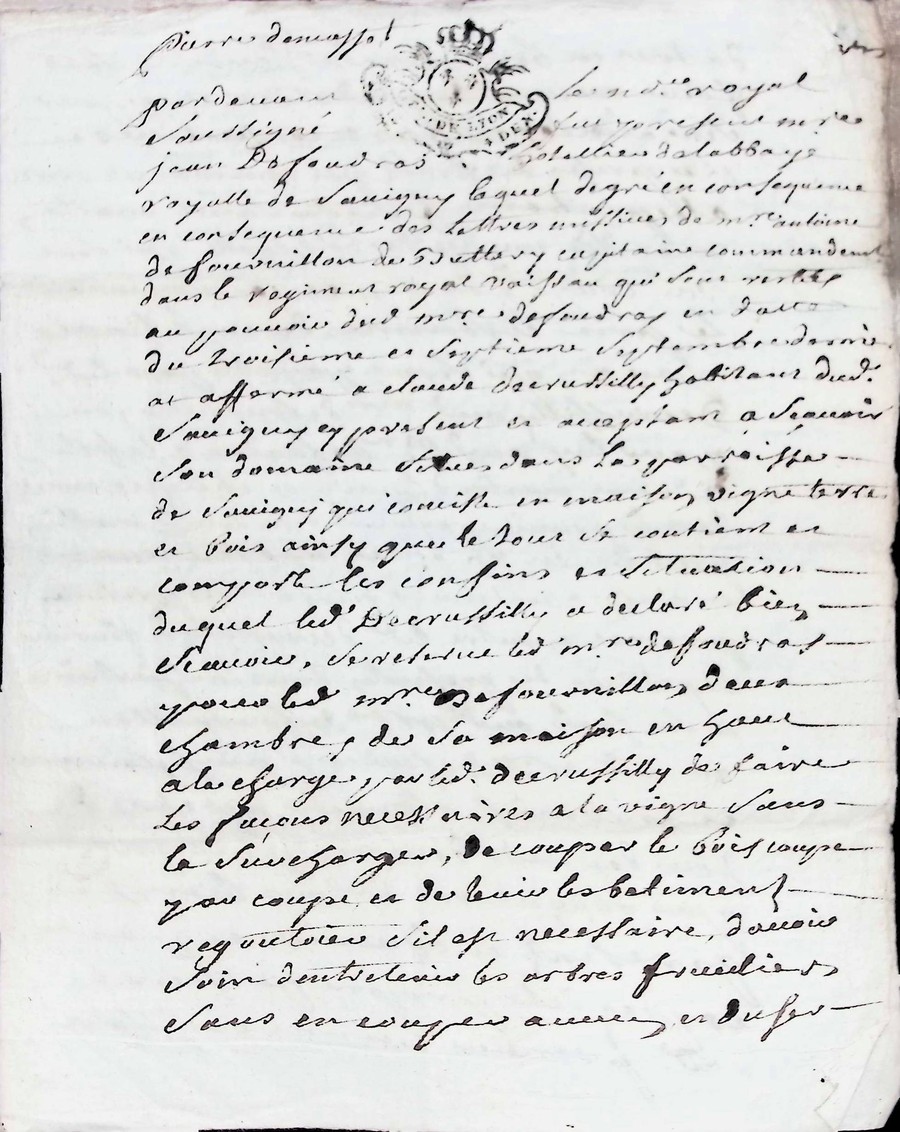 pierre
DE LYON
DEN
pardevant le no.re royal
soussigné fut present m.re
jean Defoudras hotellier de labbaye
royalle de Savigny lequel de gré en consequence
en consequence des lettres missives de m.re antoine
de fournillon de Buttery capitaine commandent
dans le regiment royal vaissau qui sont
au pouvoir dud m.re defoudras en datte
du troisieme et septieme septembre dernie
at affermé a claude decrussilly habitant dud.
Savigny cy present et acceptant a scavoir
son domaine situé dans la parroisse
de Savigny qui consiste en maison, vigne terre
et bois ainsy que le tout se contient et
comporte les confins et situation
duquel led Decrussilly a declaré bien
scavoir, se reserve led m.re defoudras
pour led m.re Defournillon, deux
chambres de sa maison en haut
a la charge par led. decrussilly de faire
les façons necessaires a la vigne sans
la surcharger, de couper le bois coupe
par coupe et de tenir les batiment
regoutoier sil est necessaire, davoir
soin dentretenir les arbres fruitiers
sans en couper aucun, et du